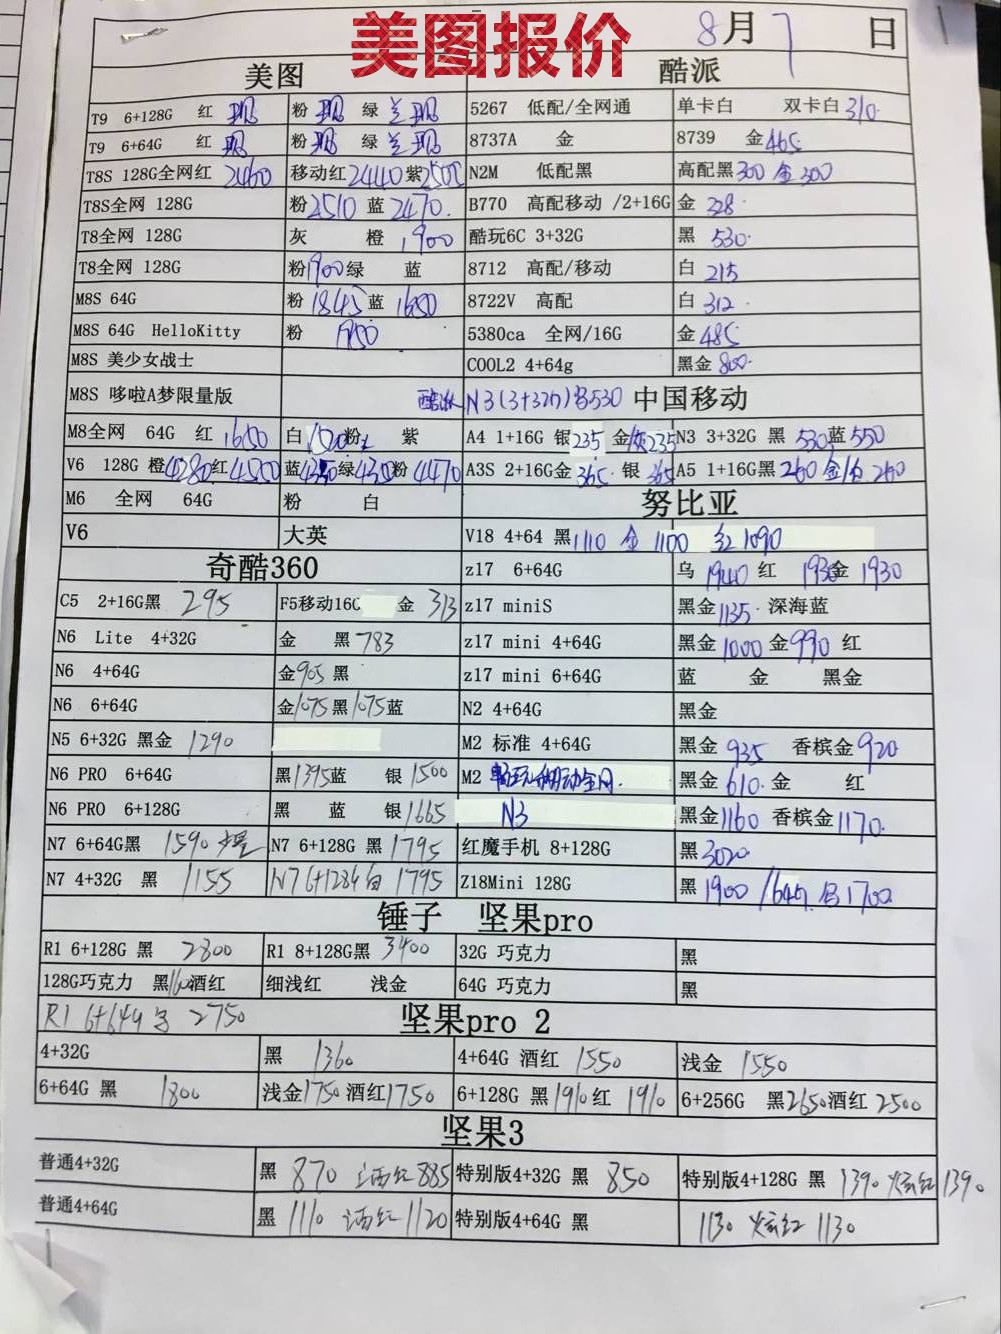 美图报价
8月7日
美图 酷派
T9 6+128G 红 现 粉 现 绿 兰 现 5267 低配/全网通 单卡白 双卡白 310
T9 6+64G 红 现 粉 现 绿 兰 现 8737A 金 8739 金 465
T8S 128G全网红 2460 移动红2440紫2500 N2M 低配黑 高配黑300 金300
T8S全网 128G 粉2510 蓝2470 B770 高配移动 /2+16G 金 328
T8全网 128G 灰 橙 1900 酷玩6C 3+32G 黑 530
T8全网 128G 粉1900绿 蓝 8712 高配/移动 白 215
M8S 64G 粉 1845 蓝 1680 8722V 高配 白 312
M8S 64G HelloKitty 粉 5380ca 全网/16G 金 485
M8S 美少女战士 COOL2 4+64g 黑金 800
M8S 哆啦A梦限量版 酷派N3(3+32G) 530 中国移动
M8全网 64G 红 1680 白 粉 紫 A4 1+16G 银235 金 235 N3 3+32G 黑 530蓝550
V6 128G 橙4280红4500 蓝 绿 粉 4470 A3S 2+16G金 365 银 365 A5 1+16G黑 260 金 260
M6 全网 64G 粉 白 努比亚
V6 大英 V18 4+64 黑1110 金 1100 红1090
奇酷360 z17 6+64G 乌 1940 红 1930金 1930
C5 2+16G黑 295 F5移动16G 金 313 z17 miniS 黑金1135 深海蓝
N6 Lite 4+32G 金 黑 783 z17 mini 4+64G 黑金1000金990 红
N6 4+64G 金905黑 z17 mini 6+64G 蓝 金 黑金
N6 6+64G 金1075黑1075蓝 N2 4+64G 黑金
N5 6+32G 黑金 1290 M2 标准 4+64G 黑金 935 香槟金920
N6 PRO 6+64G 黑1395蓝 银1500 M2 畅玩移动全网 黑金 610 金 红
N6 PRO 6+128G 黑 蓝 银1665 N3 黑金1160 香槟金1170
N7 6+64G黑 1590 N7 6+128G 黑 1795 红魔手机 8+128G 黑3020
N7 4+32G 黑 1155 N7 6+128G 白 1795 Z18Mini 128G 黑 1900 /64G 1700
锤子 坚果pro
R1 6+128G 黑 2800 R1 8+128G黑 3400 32G 巧克力 黑
128G巧克力 黑 酒红 细浅红 浅金 64G 巧克力 黑
R1 6+64G 2750 坚果pro 2
4+32G 黑 1360 4+64G 酒红 1550 浅金 1550
6+64G 黑 1800 浅金1750酒红1750 6+128G 黑1910红 1910 6+256G 黑2650酒红2500
坚果3
普通4+32G 黑 870 酒红885 特别版4+32G 黑 850 特别版4+128G 黑 1390 炫红1390
普通4+64G 黑 1110 酒红1120 特别版4+64G 黑 1130 炫红 1130